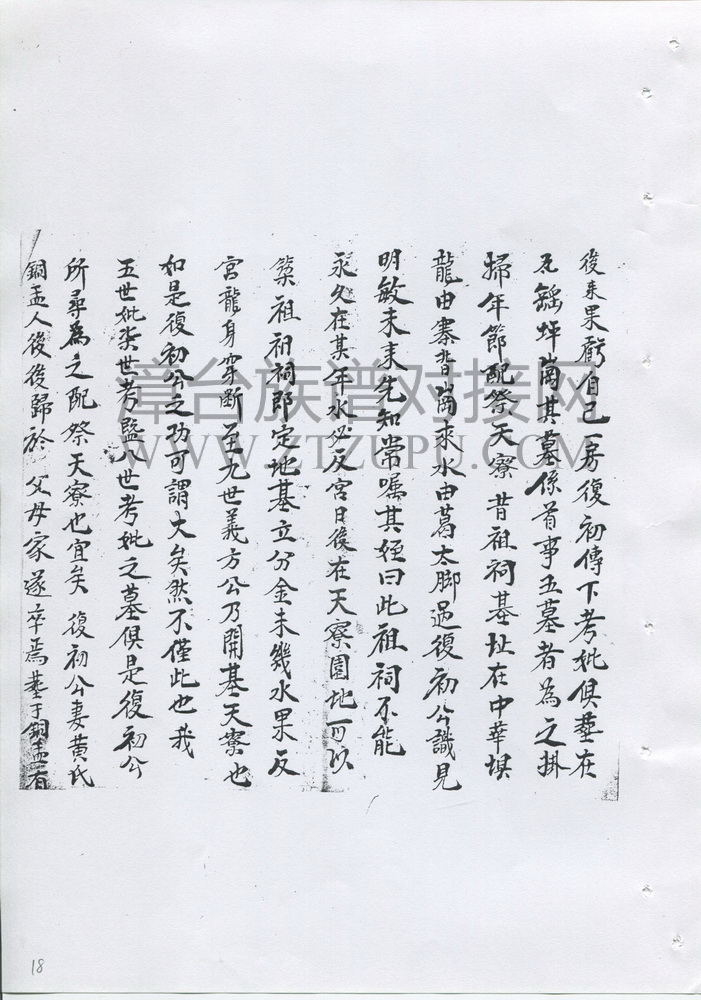 後来果虧自己一房復初傳下考妣俱塟在
瓦䍃坪崗其墓係首事五墓者為之掛
掃年節配祭天寮昔祖祠基址在中華垻
龍由寨背崗来水由葛太脚過復初公識見
明敏未来先知常嘱其姪曰此祖祠不能
永久在某年水必反宮日後在天寮園地可以
築祖祠祠即定地基立分金未幾水果反
宮龍身穿斷至九世義方公乃開基天寮也
如是復初公之功可謂大矣然不僅此也我
五世妣柒世考暨八世考妣之墓俱是復初公
所尋為之配祭天寮也宜矣 復初公妻黄氏
銅盂人後後歸於 父母家遂卒焉塟于銅盂有
漳台族谱对接网
WWW.ZTZUPU.COM
18